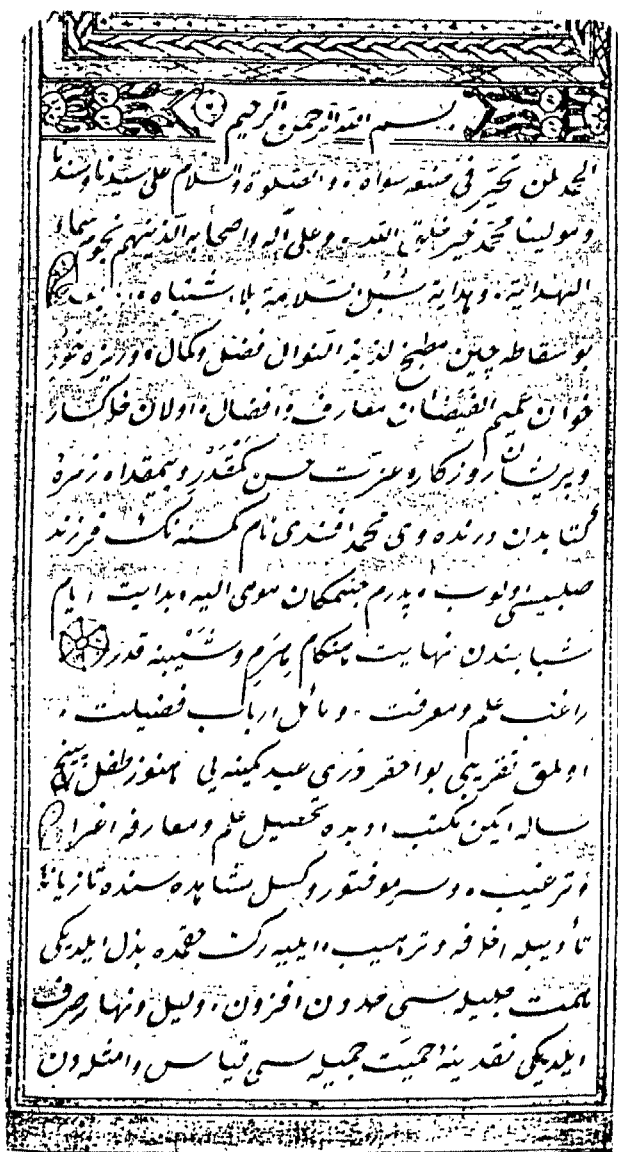 بسم الله الرحمن الرحيم
الحمد لمن تحير فى صنعه سواه ٠ والصلوة والسلام على سيدنا وسندنا
ومولينا محمد خير خلق الله ٠ وعلى آله واصحابه الذينهم نجوم سماء
الهداية ٠ وهداية سُبُل سلامة بلا اشتباه ٠
بو سقاطه چين مطبخ لذيذ النوال فضل وكمال ٠ وريزه خور
خوان عميم الفيضان معارف وافضال ٠ اولان خاكسار
و پريشان روزكار عزت حسن كمقدر وبيمقداه زمرۀ
كتابدن درنده وى محمد افندى نام كمسنه نك فرزند
صلبيسى اولوب ٠ پدرم جنتمكان مومى اليه ٠ بدايت ايام
شبابندن نهايت هنكام هرم وشيبنه قدر
راغب علم ومعرفت ٠ ومائل ارباب فضيلت ٠
اولمق تقريبى بو احقر ورى عبد كمينه يى هنوز طفل پنج
ساله ايكن مكتب اوبده تحصيل علم ومعارفه اغرا
وترغيب ٠ وسر مو فتور وكسل مشاهده سنده تازيانۀ
تأديبله اخافه وترهيب ٠ ايليه رك حقمده بذل ايلديكى
همت جليله سى حددن افزون ٠ وليل ونهار صرف
ايلديكى نقدينه احميت جميله سى قياس وامثلدون